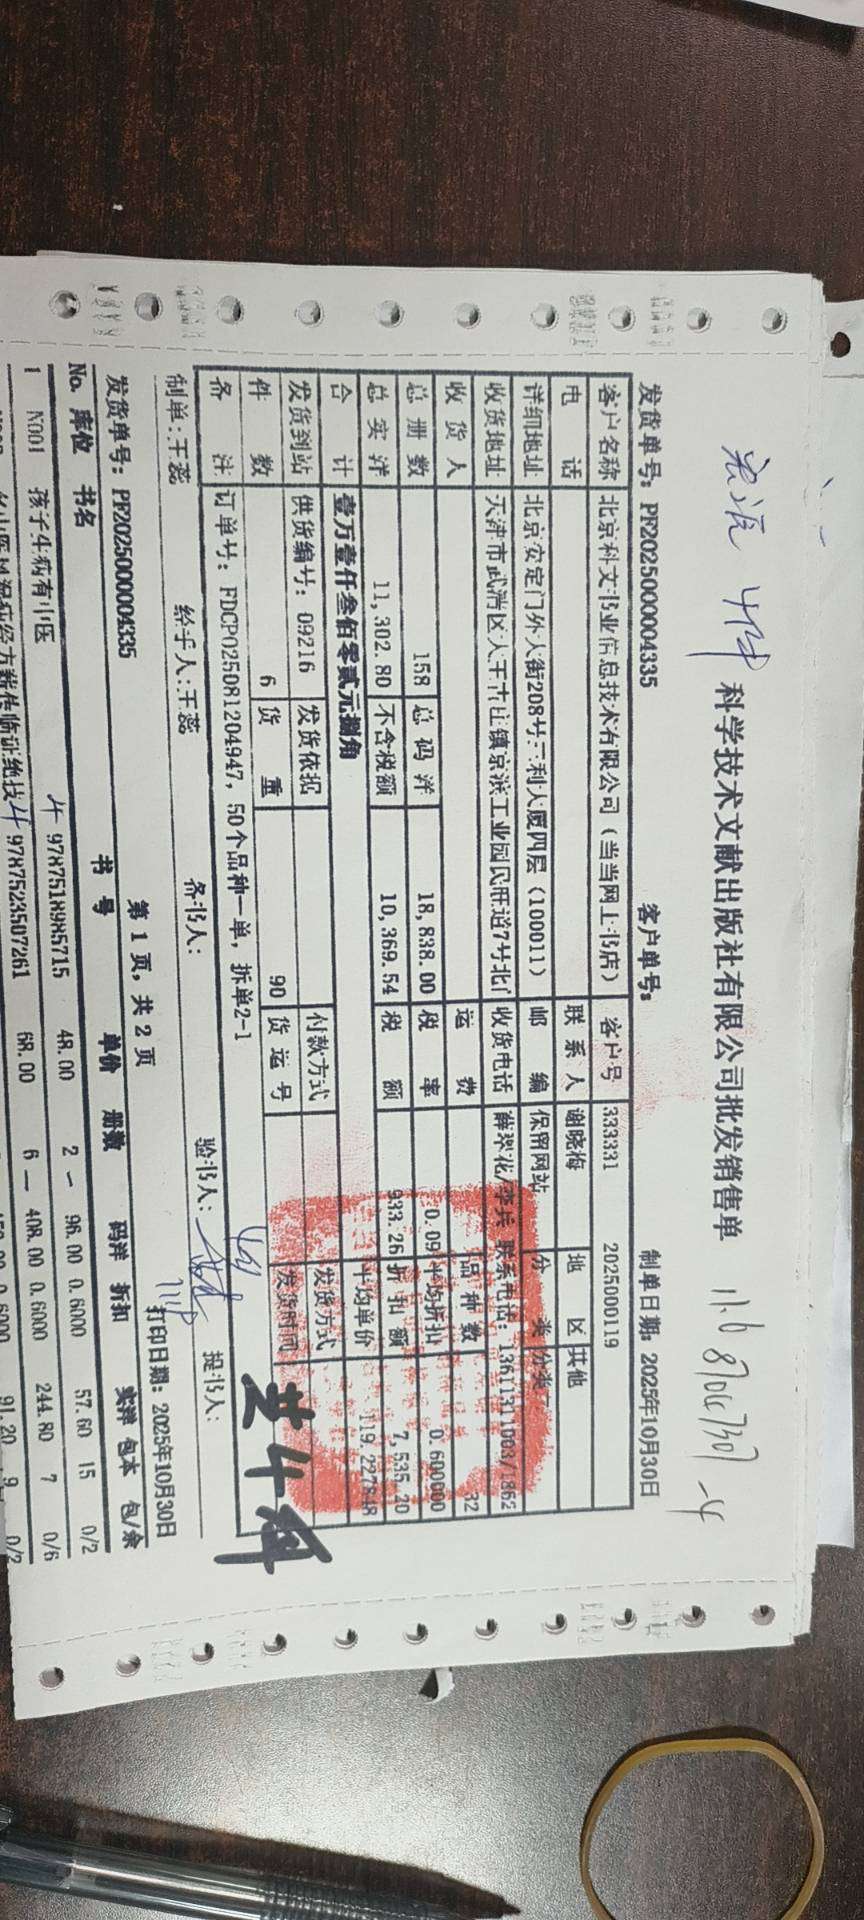 科学技术文献出版社有限公司批发销售单
发货单号: PF2025000004335 客户单号: 制单日期: 2025年10月30日
客户名称 北京科文书业信息技术有限公司(当当网上书店) 客户号 333331 2025000119
电 话 联系人 谢晓梅 地 区 其他
详细地址 北京安定门外大街208号三利大厦四层(100011) 邮 编 保留网站 分 类 分类
收货地址 天津市武清区大王古庄镇京滨工业园民旺道7号北门 收货电话 薛翠花/李兵 联系电话: 13611311003/1862
收货人 运 费 品种数 32
总册数 158 总码洋 18,838.00 税 率 0.09 平均折扣 0.600000
总实洋 11,302.80 不含税额 10,369.54 税 额 933.26 折扣额 7,535.20
合 计 壹万壹仟叁佰零贰元捌角 平均单价 119.227848
发货到站 供货编号: 09216 发货依据 付款方式 发货方式
件 数 6 货 重 90 货运号 发货时间
备 注 订单号: FDCP025081204947, 50个品种一单, 拆单2-1
制单:王蕊 经手人:王蕊 备书人: 验书人: 提书人:
打印日期: 2025年10月30日
发货单号: PF2025000004335 第 1 页, 共 2 页
No. 库位 书名 书 号 单价 册数 码洋 折扣 实洋 包本 包/余
1 N001 孩子生病有中医 9787518985715 48.00 2 96.00 0.6000 57.60 15 0/2
9787523507261 68.00 6 408.00 0.6000 244.80 7 0/6